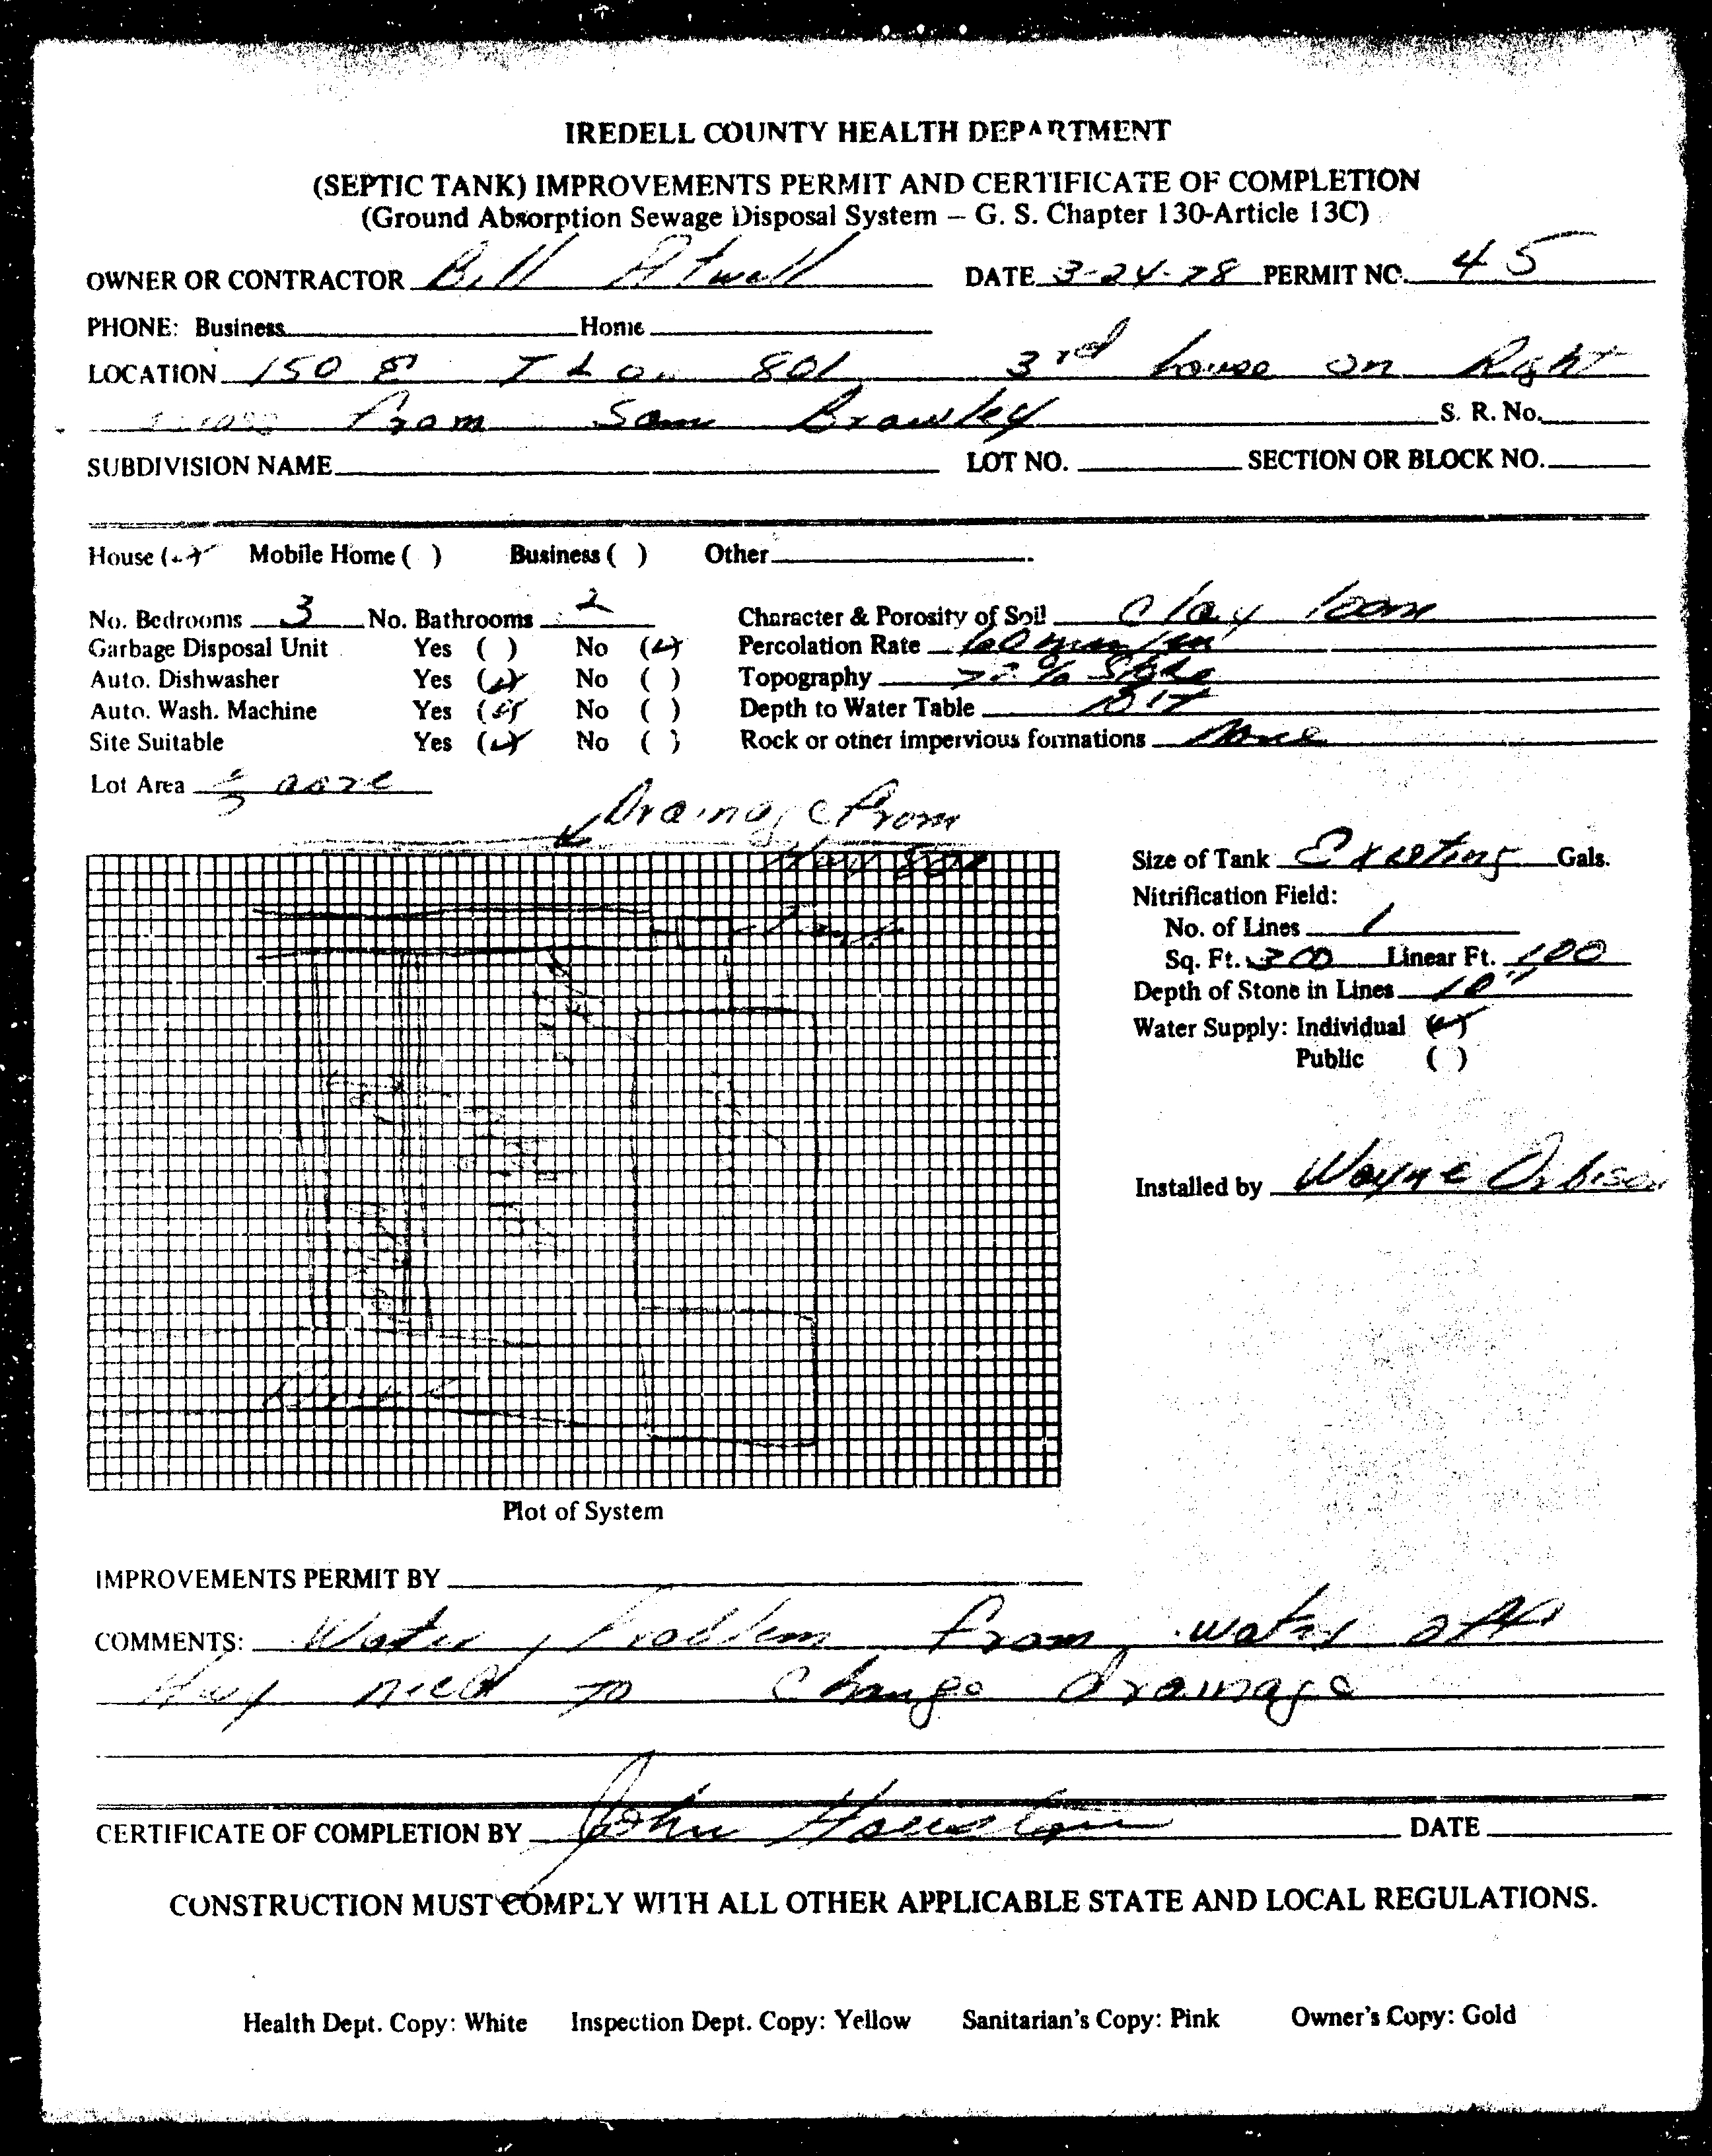 IREDELL COUNTY HEALTH DEPARTMENT
(SEPTIC TANK) IMPROVEMENTS PERMIT AND CERTIFICATE OF COMPLETION
(Ground Absorption Sewage Disposal System – G. S. Chapter 130-Article 13C)
OWNER OR CONTRACTOR Bill Atwell DATE 3-24-78 PERMIT NO. 45
PHONE: Business Home
LOCATION 150 E T L on 801 3rd house on Right
from Sam Brawley S. R. No.
SUBDIVISION NAME LOT NO. SECTION OR BLOCK NO.
House (✓) Mobile Home ( ) Business ( ) Other
No. Bedrooms 3 No. Bathrooms 2 Character & Porosity of Soil Clay loam
Garbage Disposal Unit Yes ( ) No (✓) Percolation Rate 60 min/in
Auto. Dishwasher Yes (✓) No ( ) Topography % Slope
Auto. Wash. Machine Yes (✓) No ( ) Depth to Water Table
Site Suitable Yes (✓) No ( ) Rock or other impervious formations None
Lot Area acre
Drainage from
Hwy 801
Size of Tank Existing Gals.
Nitrification Field:
No. of Lines 1
Sq. Ft. 300 Linear Ft. 100
Depth of Stone in Lines 10"
Water Supply: Individual (✓)
Public ( )
Tank
Installed by Wayne Orbison
Drive
Plot of System
IMPROVEMENTS PERMIT BY
COMMENTS: Water Problem from water off
Hwy need to change drainage
CERTIFICATE OF COMPLETION BY John Houston DATE
CONSTRUCTION MUST COMPLY WITH ALL OTHER APPLICABLE STATE AND LOCAL REGULATIONS.
Health Dept. Copy: White Inspection Dept. Copy: Yellow Sanitarian's Copy: Pink Owner's Copy: Gold